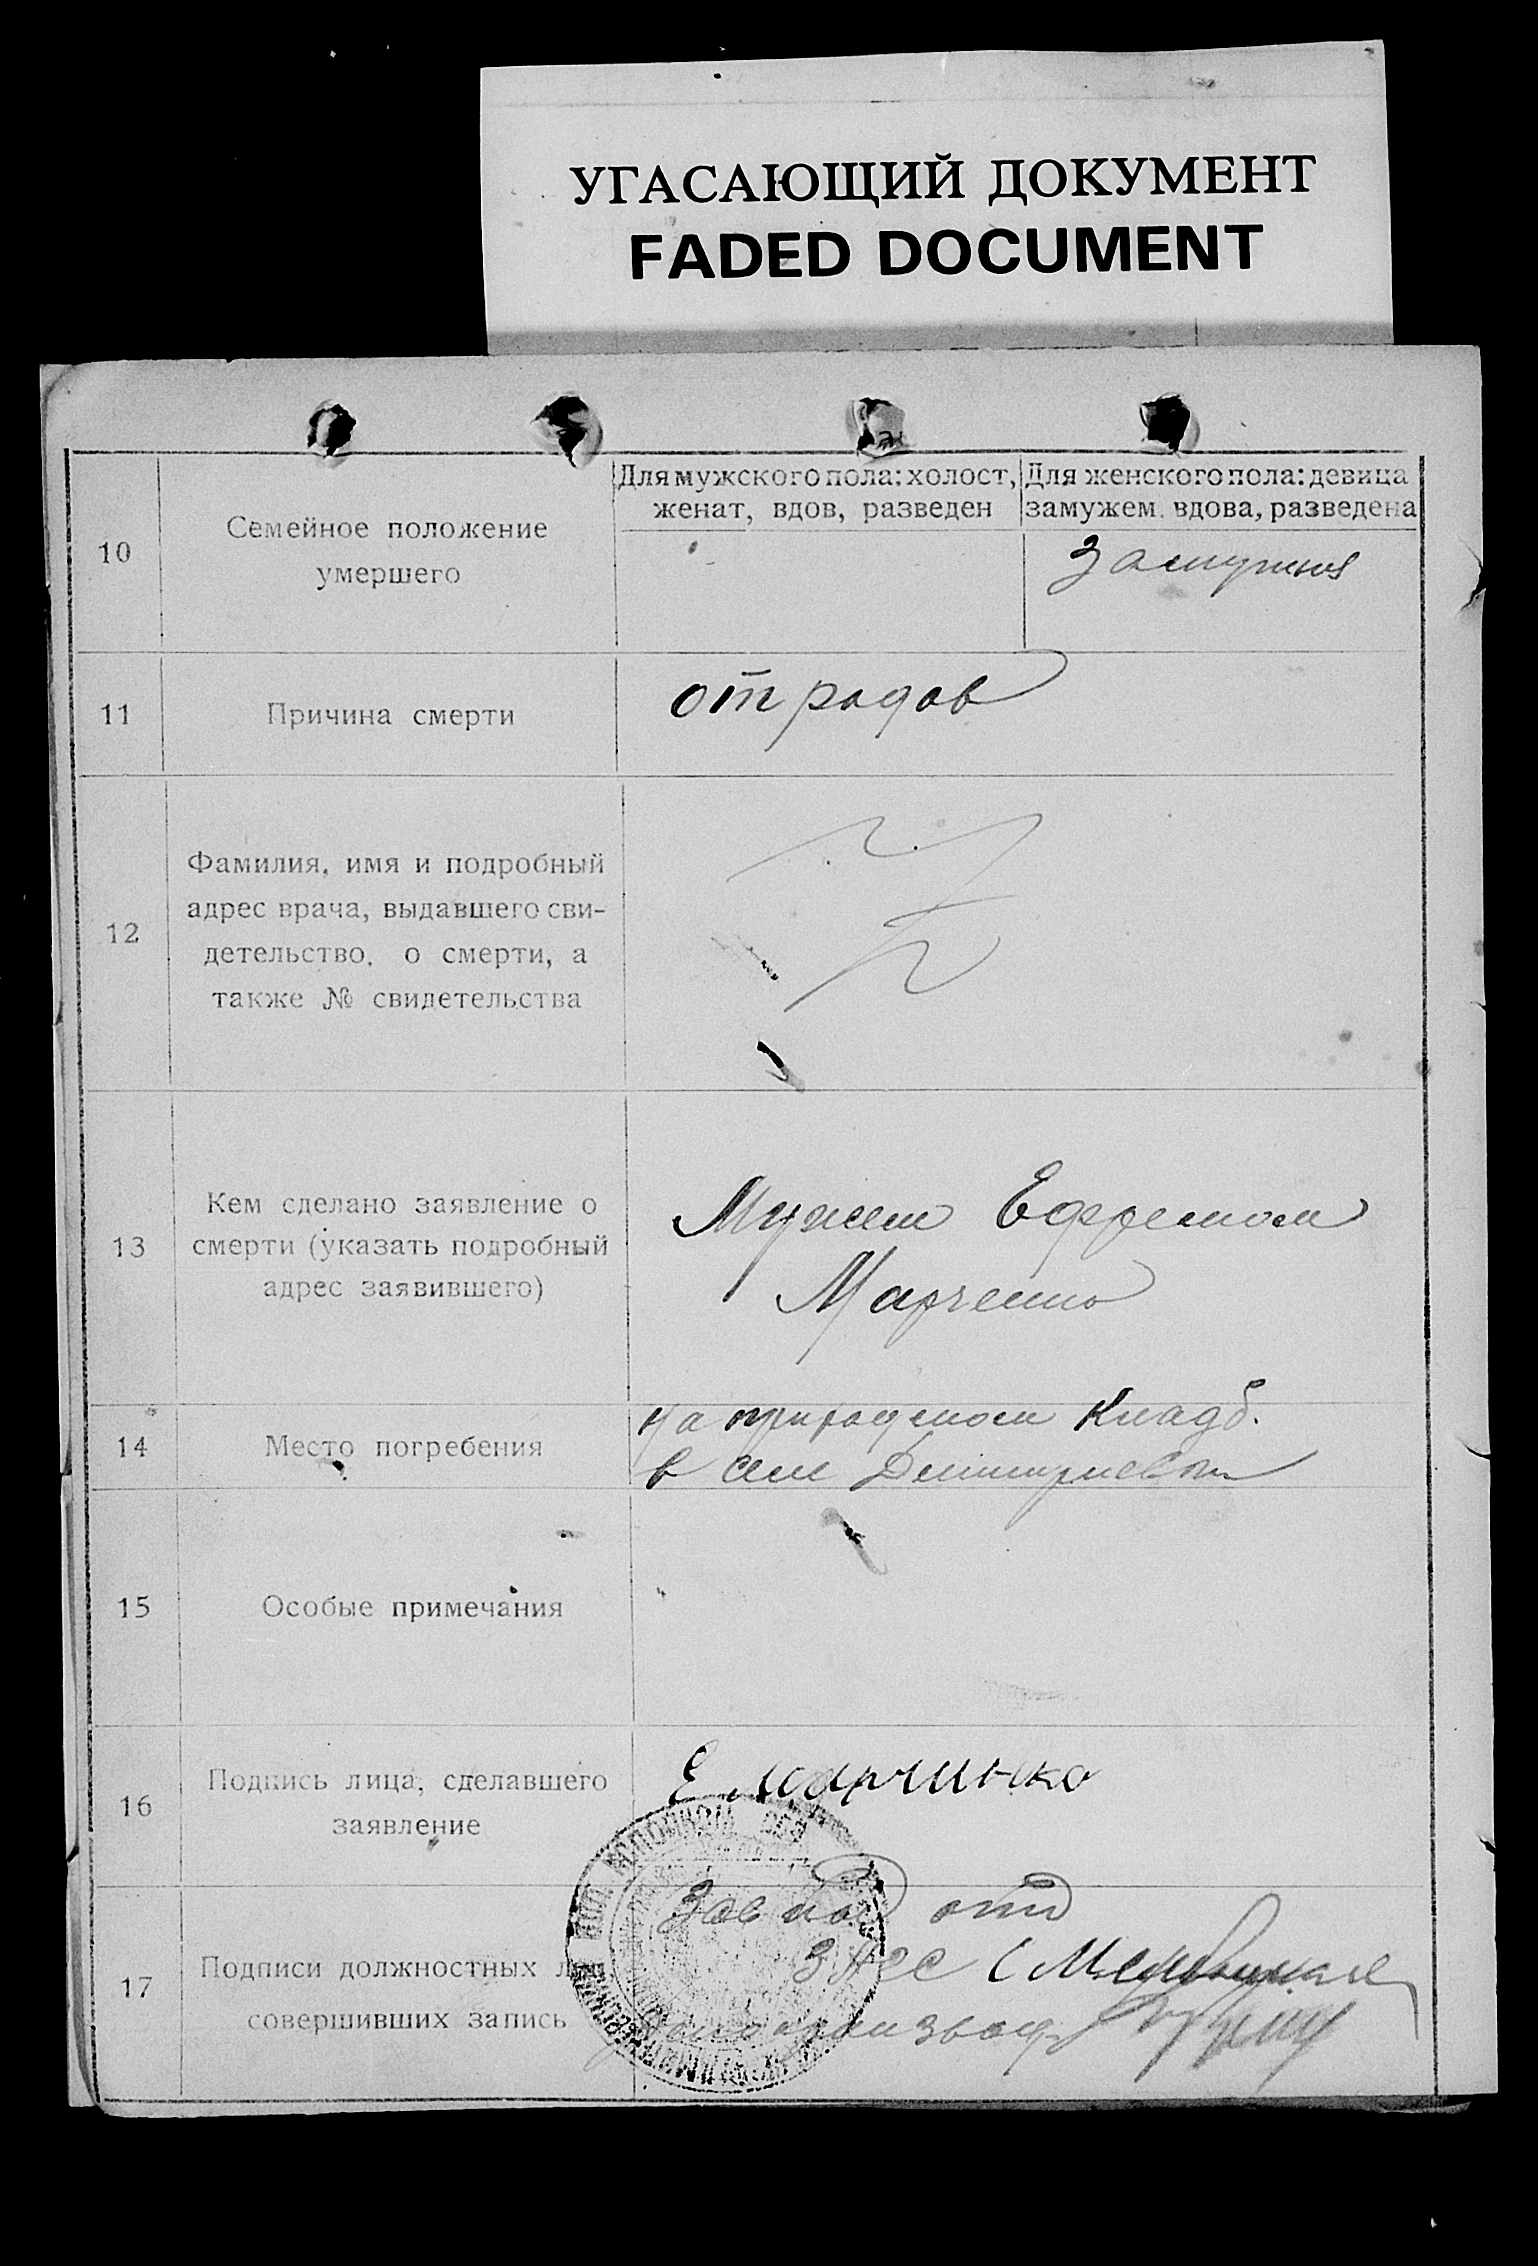 УГАСАЮЩИЙ ДОКУМЕНТ
FADED DOCUMENT
10
Семейное положение
умершего
Для мужского пола: холост,
женат, вдов, разведен
Для женского пола: девица
замужем. вдова, разведена
замужняя
11
Причина смерти
от родов
12
Фамилия, имя и подробный
адрес врача, выдавшего сви-
детельство, о смерти, а
также № свидетельства
13
Кем сделано заявление о
смерти (указать подробный
адрес заявившего)
Мужем Ефремом
Марченко
14
Место погребения
на приходском кладб.
в селе Дмитриевом
15
Особые примечания
16
Подпись лица, сделавшего
заявление
Е Марчинко
17
Подписи должностных
совершивших запись
Зав под отд
ЗАГС